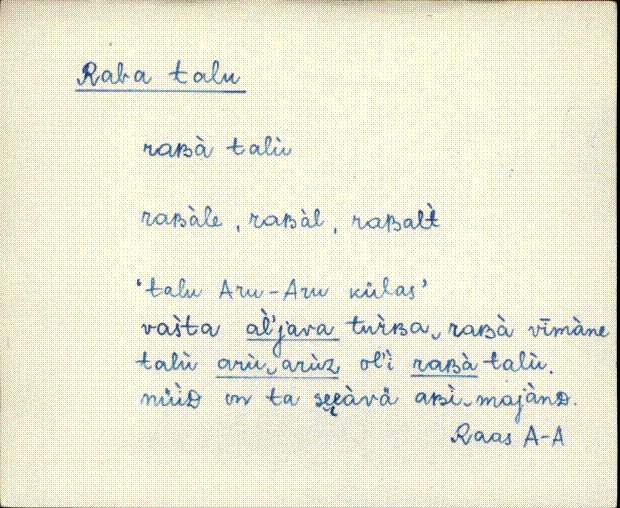 Raba talu
raʙà talù
raʙàle, raʙàl, raʙalt̀
'talu Aru-Aru külas'
vas̀ta al̀'java tur̀ʙa‿raʙà vīmàne
talù arù‿arùz ol'ì raʙà talù.
nǖ̀ᴅ on ta sęęàvä aʙì‿majànᴅ.
Raas A-A